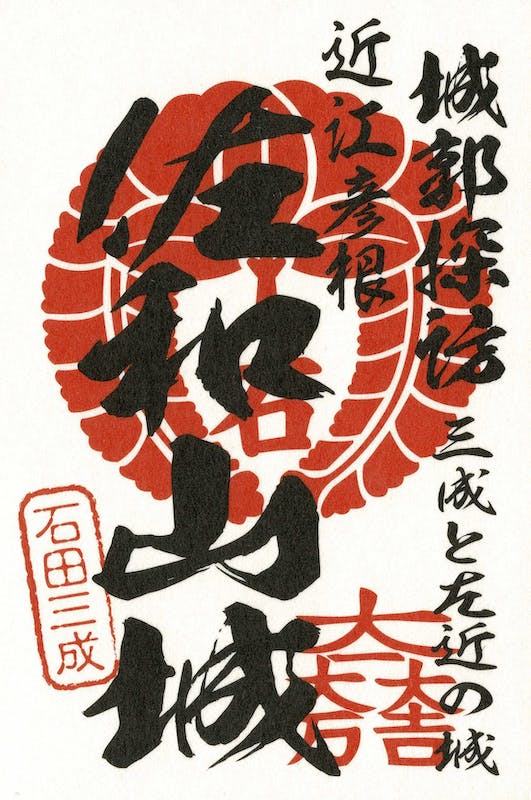 城郭探訪 三成と左近の城
近江彦根
佐和山城
石田三成
大一大万大吉